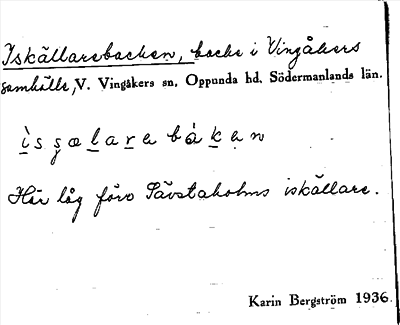 Iskällarebacken, backe i Vingåkers
samhälle, V. Vingåkers sn, Oppunda hd, Södermanlands län.
Här låg förr Sävstaholms iskällare.
Karin Bergström 1936.